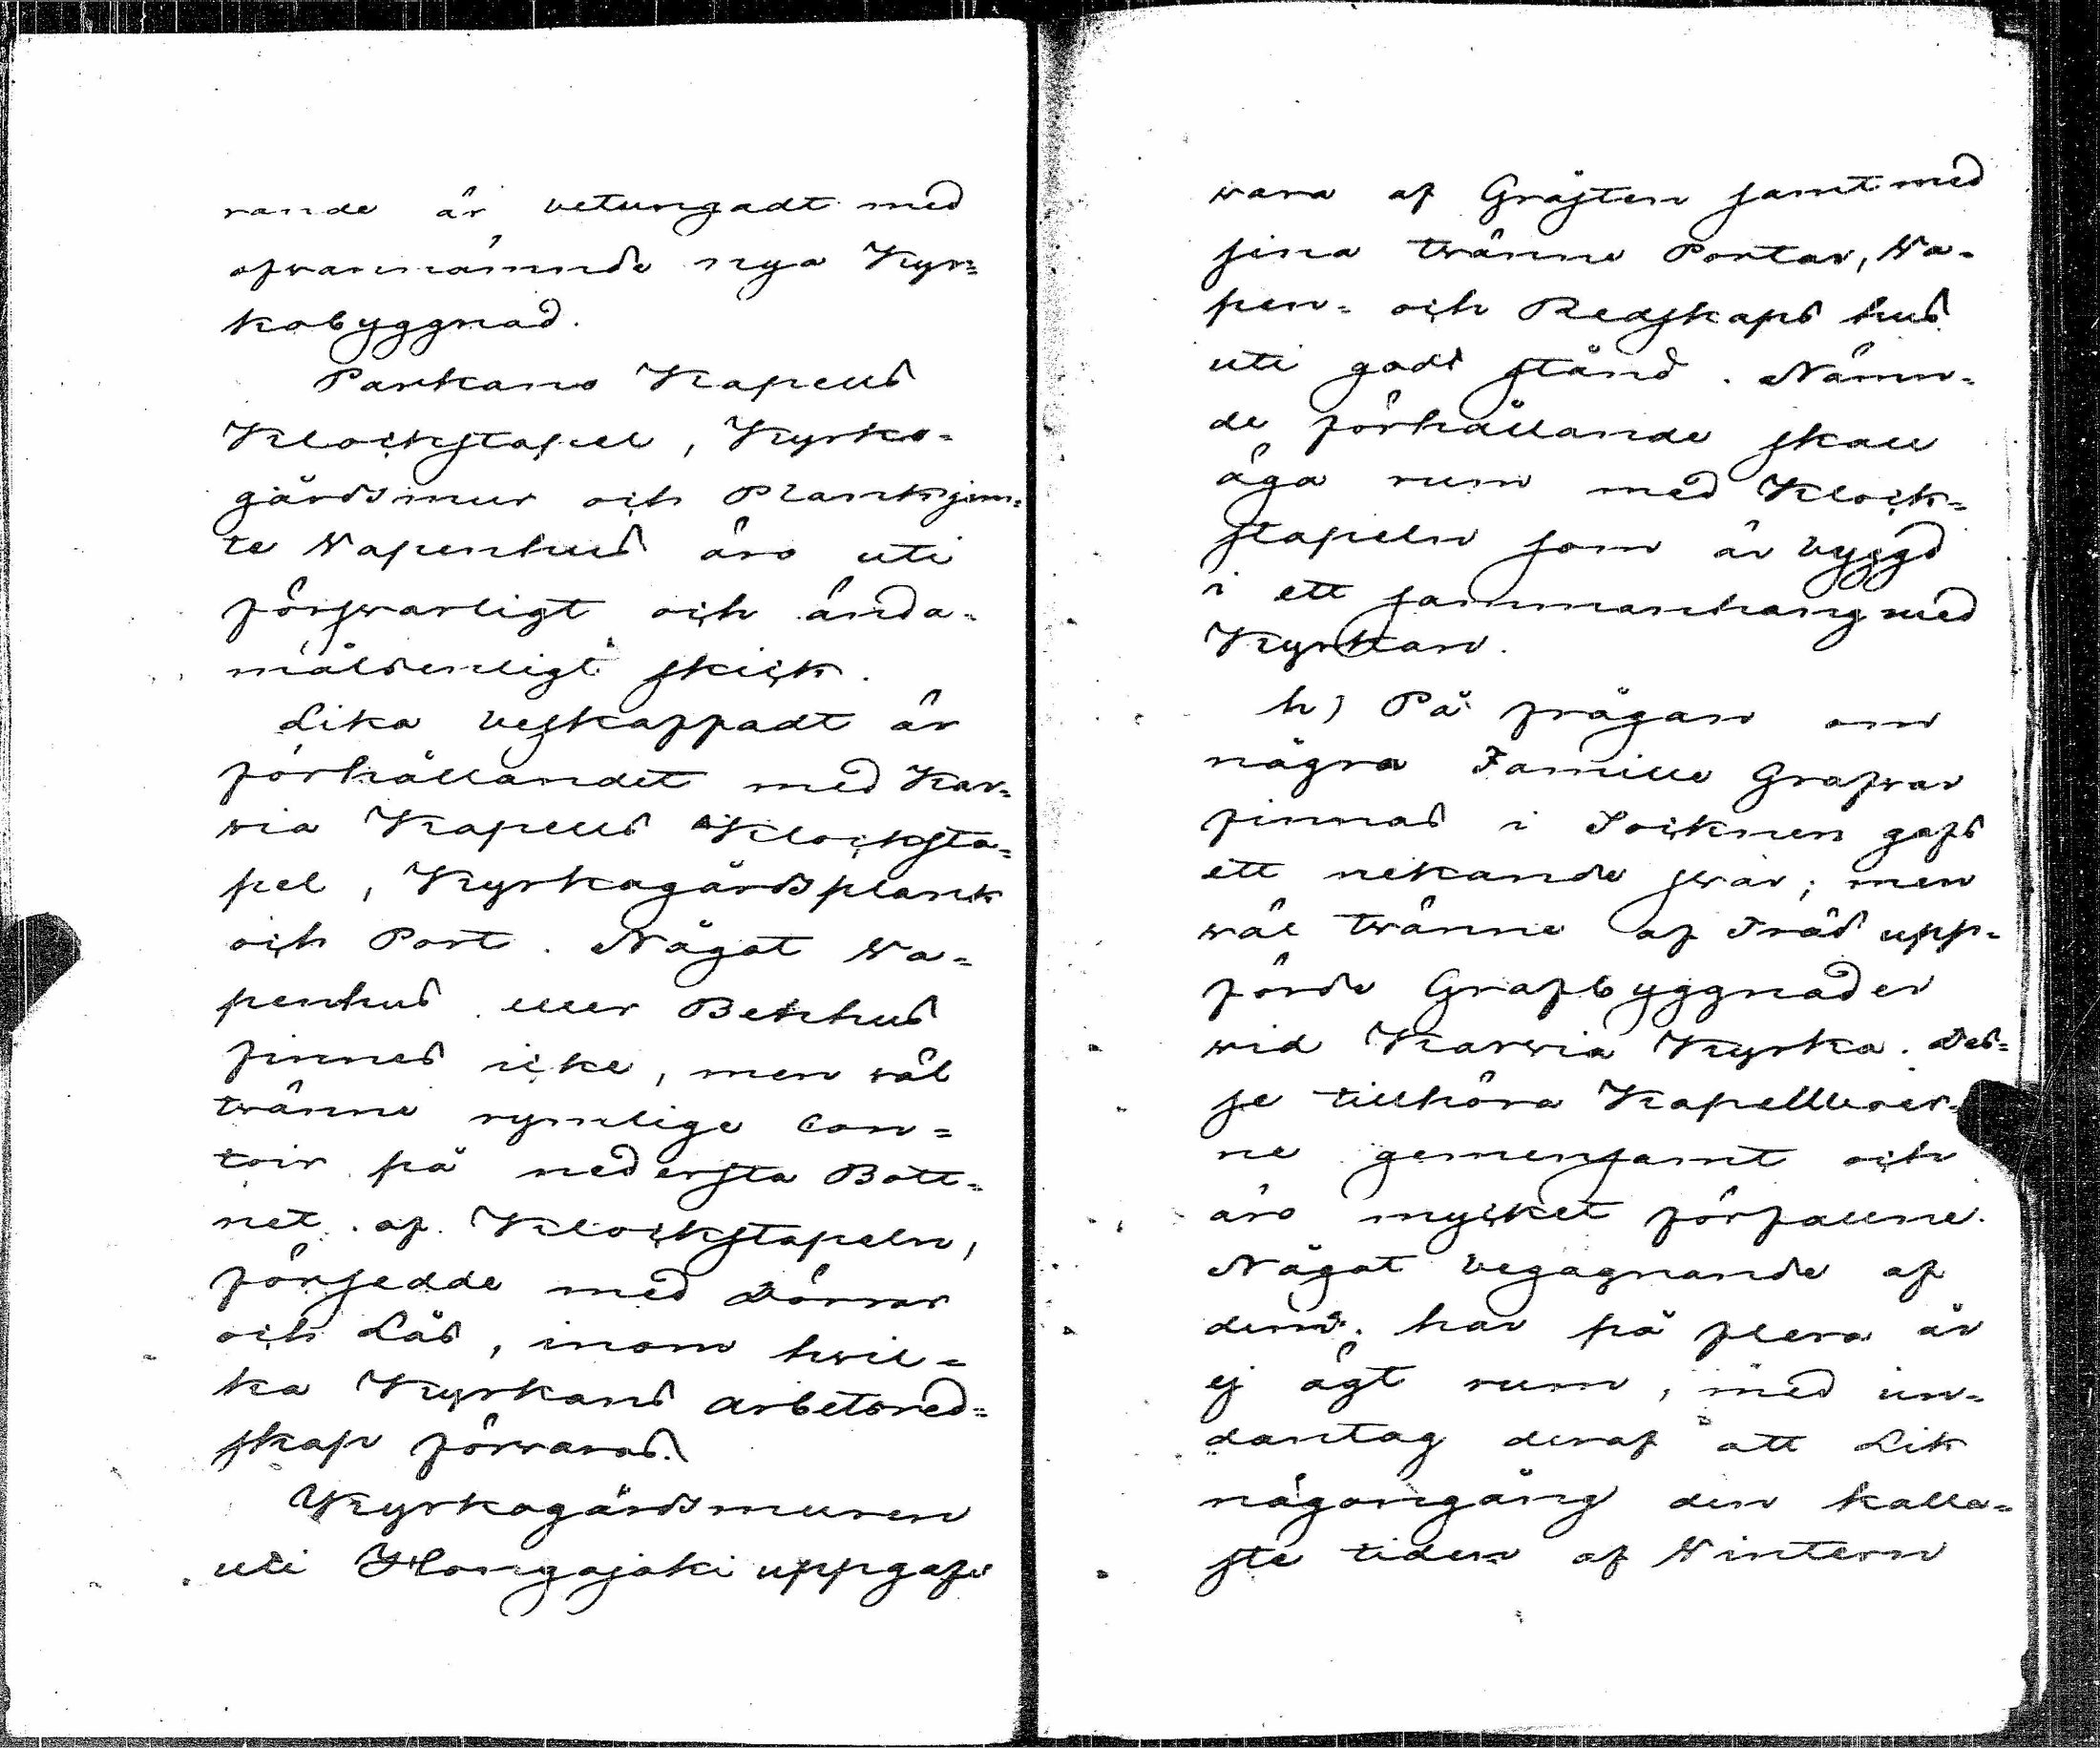 rande är betungadt med
ofvannämnde nya Kyr=
kobyggnad.
Parkano Kapells
Klockstapel, Kyrko-
gårdsmur och Plank jem=
te Wapenhus äro uti
försvarligt och ända-
målsenligt skick.
Lika beskaffadt är
förhållandet med Kar=
via Kapells Klocksta=
pel, Kyrkogårdsplank
och Port. Något Wa=
penhus eller Benhus
finnes icke, men väl
tvänne rymlige Con=
toir på nedersta Bott=
net af Klockstapeln,
försedde med Dörrar
och Lås, inom hvil=
ka Kyrkans arbetsred=
skap förvaras.
Kyrkogårdsmuren
uti Hongojoki uppgafs
vara af Gråsten samt med
sina tvänne Portar, Wa-
pen= och Redskaps hus
uti godt stånd. Nämn=
de förhållande skall
äga rum med Klock=
stapeln som är byggd
i ett sammanhang med
Kyrkan.
h) På frågan om
några Famille Grafvar
finnas i Socknen gafs
ett nekande svar; men
väl tvänne af Träd upp=
förde Grafbyggnader
vid Karvia Kyrka. Des=
se tillhöra Kapellboer-
ne gemensamt och
äro mycket förfallne.
Något begagnande af
dem har på flera år
ej ägt rum, med un=
dantag deraf att Lik
någongång den kalla=
ste tiden af Wintern